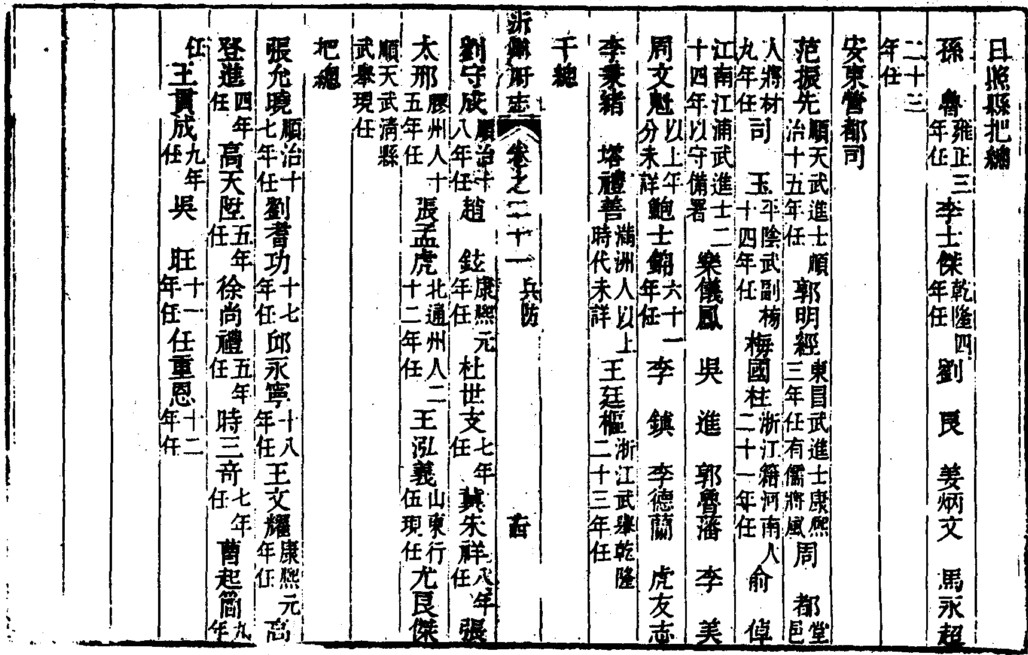 日照縣把總
孫　魯雍正三年任李士傑乾隆四年任劉　艮　姜炳文　馬永超
二十三年任
安東營都司
范振先順天武進士順治十五年任郭明經東昌武進士康熙三年任有儒將風周　都堂邑
人將材九年任司　玉平陰武副榜十四年任梅國柱浙江籍河南人二十一年任俞　倬
江南江浦武進士二十四年以守備署樂儀鳳　吳　進　郭魯藩　李　美
周文魁以上年分未詳鮑士錦六十一年任李　鎮　李德蘭　虎友志
李秉緒　塔禮善滿洲人以上時代未詳王廷樞浙江武舉乾隆二十三年任
千總
沂州府志　卷之二十一　兵防
劉守成順治十八年任趙　鉉康熙元年任杜世支七年任冀朱祥八年任張
太邢膠州人十五年任張孟虎北通州人二十二年任王泓義山東行伍現任尤良傑
順天武清縣武舉現任
把總
張允曉順治十七年任劉耆功十七年任邱永寧十八年任王文耀康熙元年任高
登進四年任高天陞五年任徐尚禮五年任時三奇七年任曹起簡九年
任王貫成九年任吳　旺十一年任任重恩十二年任